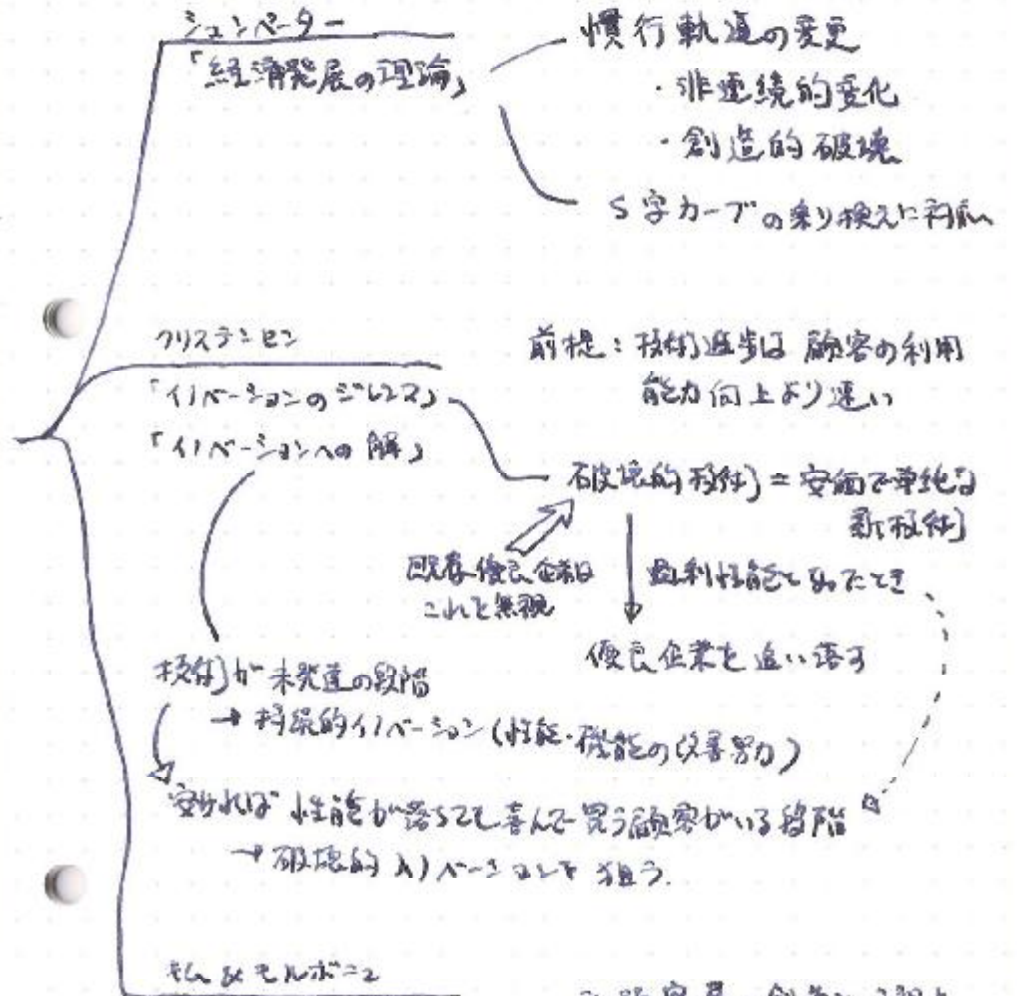 シュンペーター
「経済発展の理論」
慣行軌道の変更
・非連続的変化
・創造的破壊
S字カーブの乗り換えに対応
クリステンセン
「イノベーションのジレンマ」
「イノベーションへの解」
前提：技術進歩は顧客の利用
能力向上より速い
破壊的技術＝安価で単純な
新技術
既存優良企業は
これを無視
性能となったとき
優良企業を追い落す
技術が未発達の段階
→持続的イノベーション（性能・機能の改善努力）
安ければ性能が落ちても喜んで買う顧客がいる段階
→破壊的イノベーションを狙う.
キム&モルボニュ